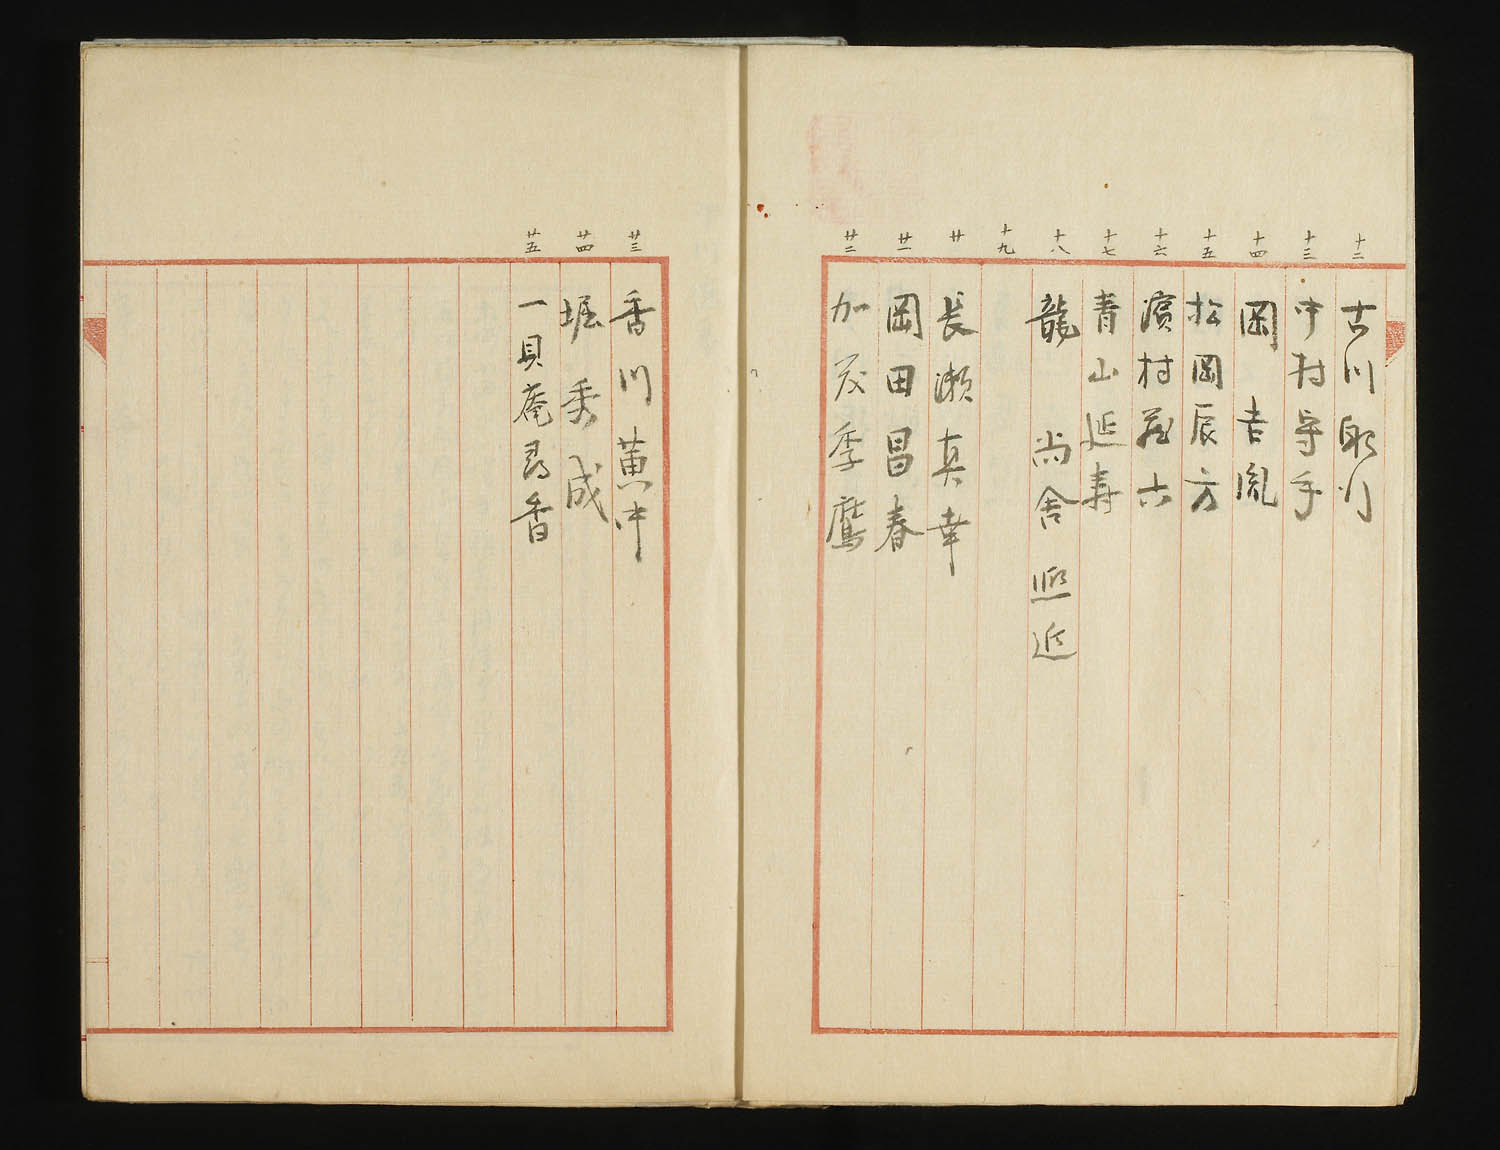 十二 古川躬行
十三 中村守手
十四 岡 吉胤
十五 松岡辰方
十六 濱村蔵六
十七 青山延寿
十八 龍 尚舍 熈近
十九
廿 長瀬真幸
廿一 岡田昌春
廿二 加茂季鷹
廿三 香川黄中
廿四 堀秀成
廿五 一具庵尋香